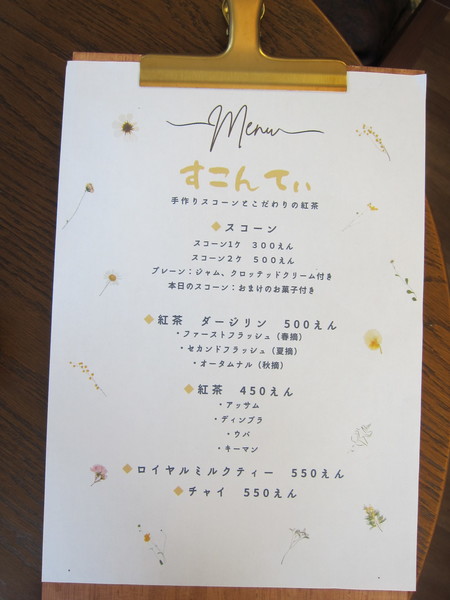 Menu
すこんてぃ
手作りスコーンとこだわりの紅茶
◆スコーン
スコーン1ケ 300えん
スコーン2ケ 500えん
プレーン：ジャム、クロッテッドクリーム付き
本日のスコーン：おまけのお菓子付き
◆紅茶 ダージリン 500えん
・ファーストフラッシュ（春摘）
・セカンドフラッシュ（夏摘）
・オータムナル（秋摘）
◆紅茶 450えん
・アッサム
・ディンブラ
・ウバ
・キーマン
◆ロイヤルミルクティー 550えん
◆チャイ 550えん